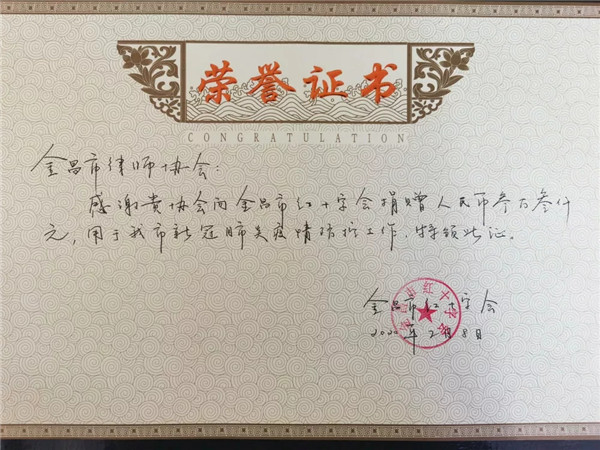 荣誉证书
CONGRATULATION
金昌市律师协会:
感谢贵协会向金昌市红十字会捐赠人民币叁万叁仟
元,用于我市新冠肺炎疫情防控工作,特颁此证。
金昌市红十字会
2020年2月8日
金昌市红十字会